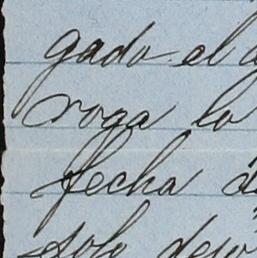 gado el
roga lo
fecha
solo dejo